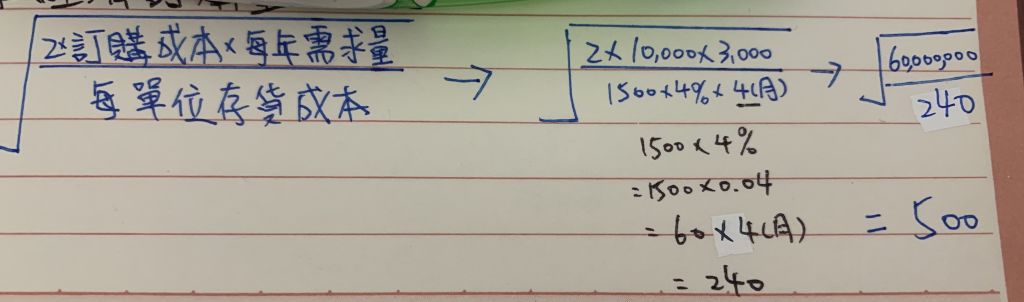 2×訂購成本×每年需求量
每單位存貨成本
→
2×10,000×3,000
1500×4%×4(月)
→
60,000,000
240
1500×4%
=1500×0.04
=60×4(月)
=240
=500